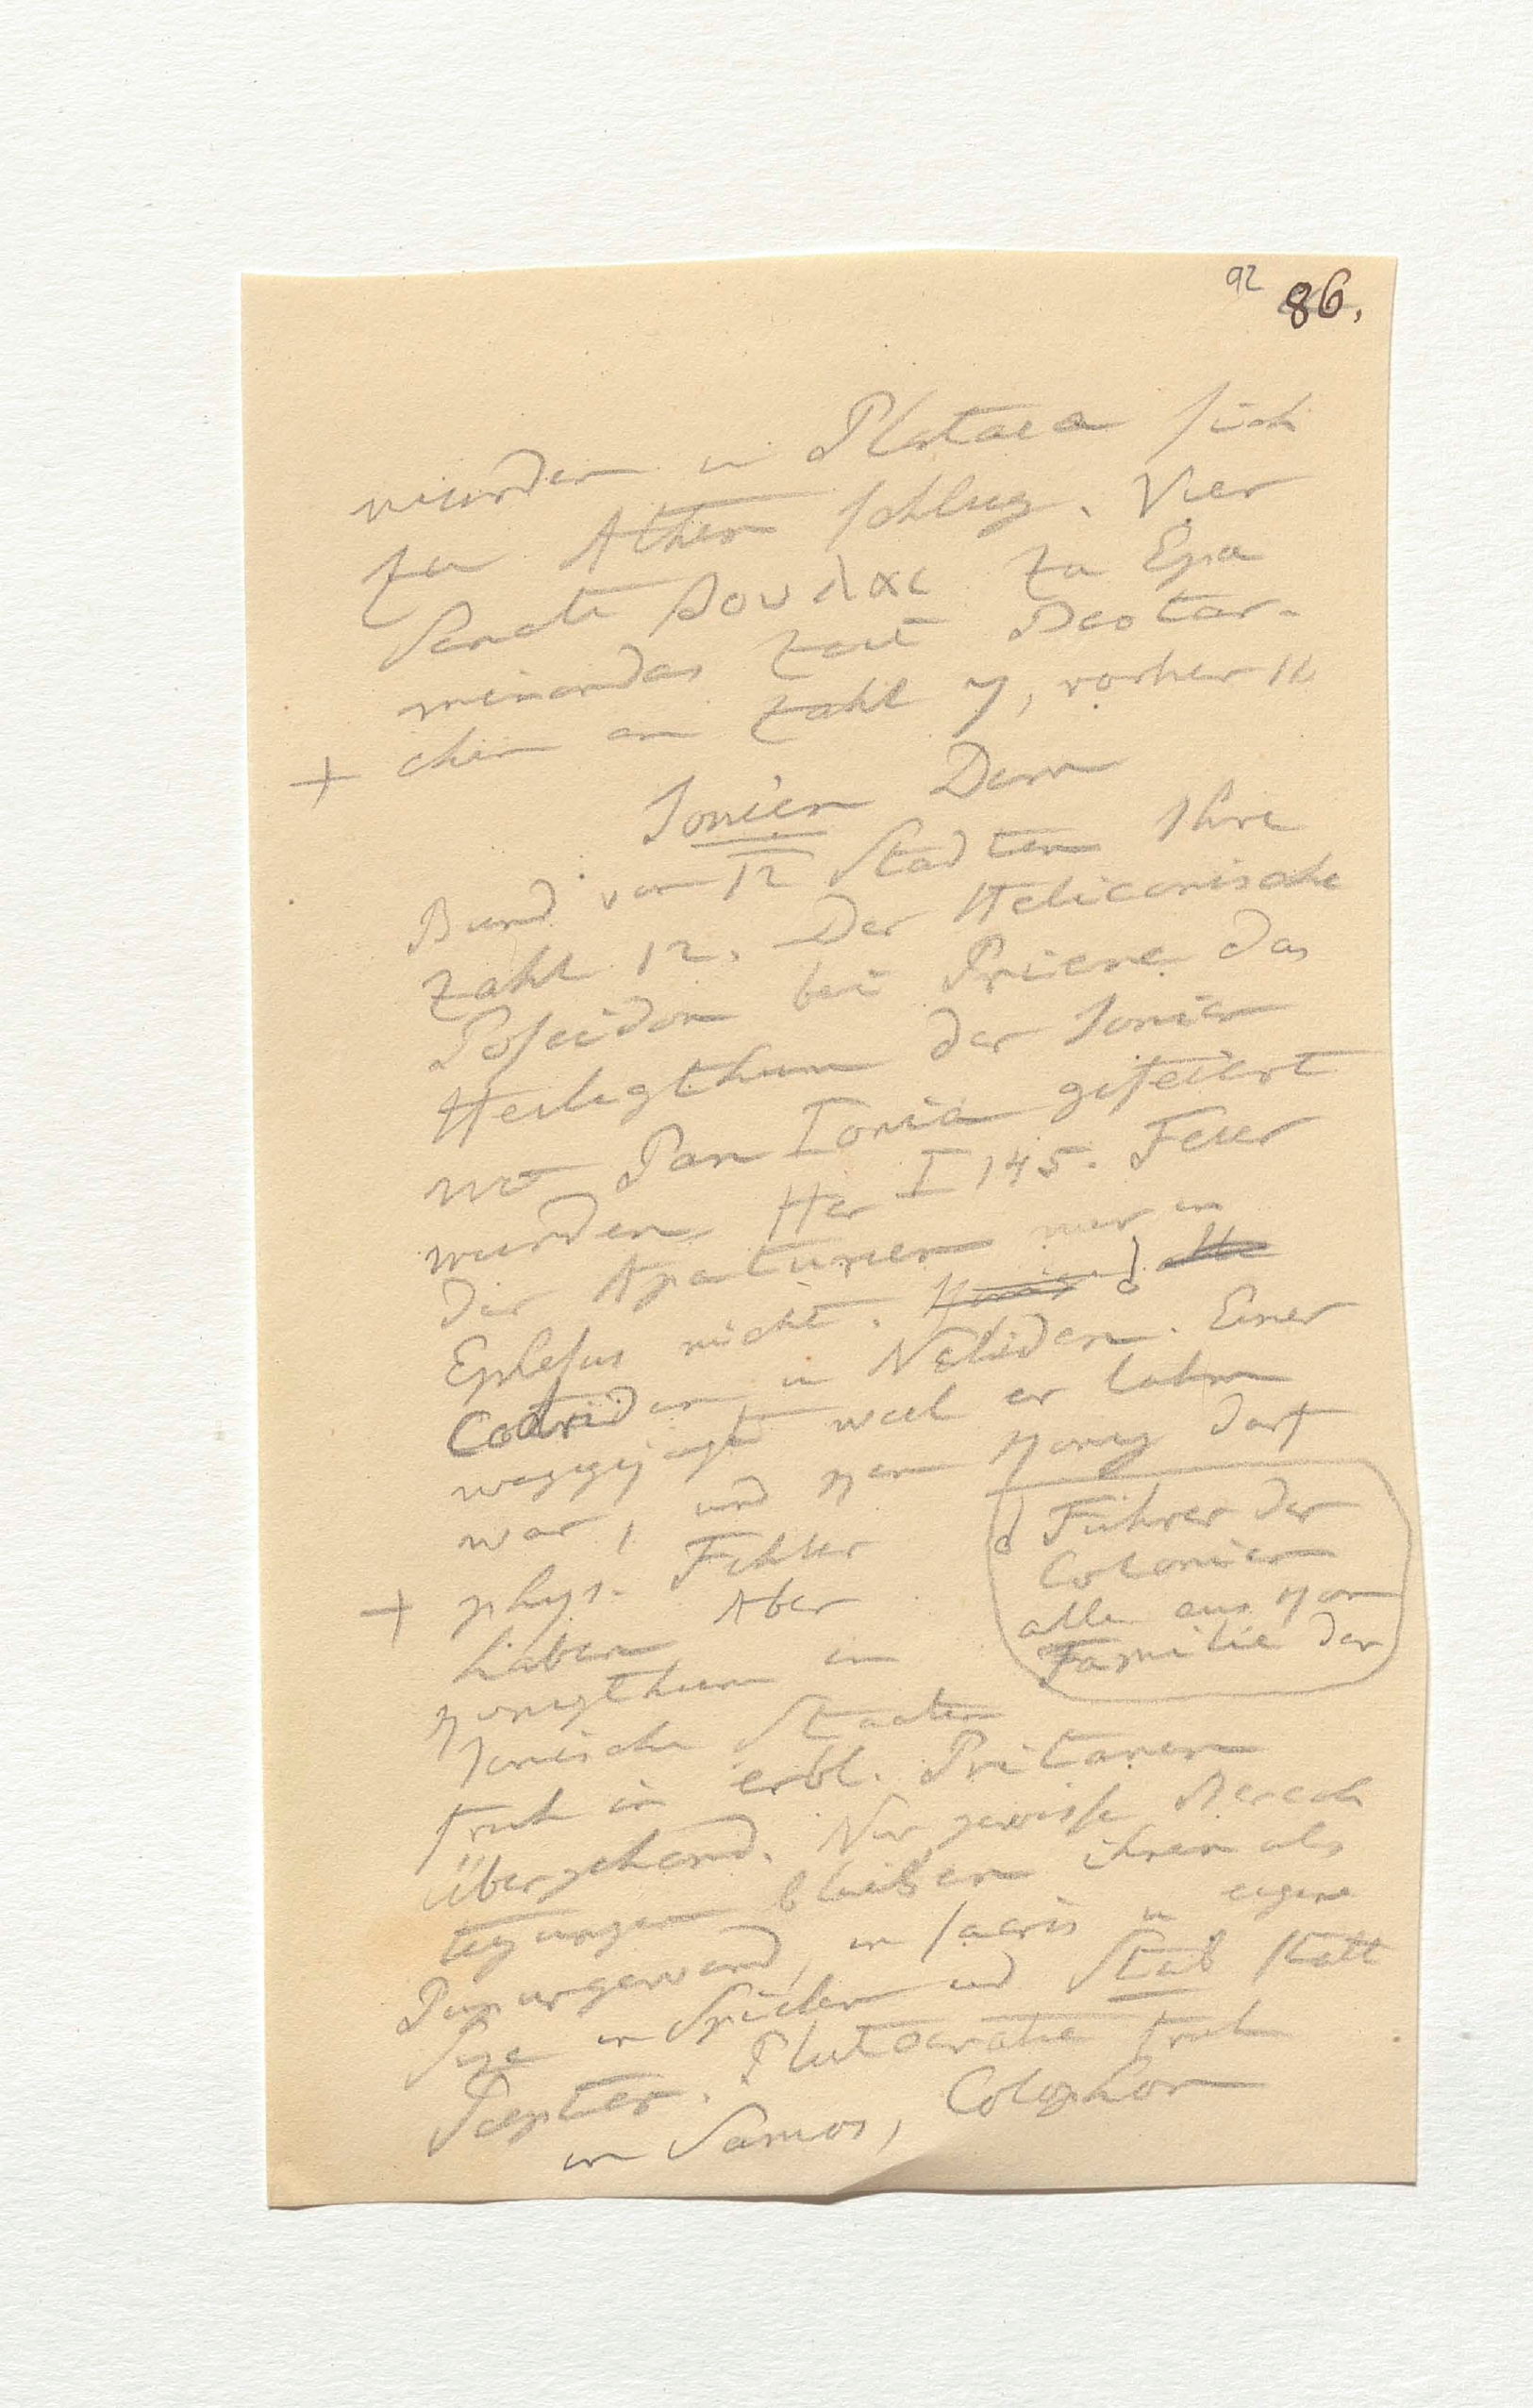 92 86.
wurden u Plataea sich
zu Athen schlug. Vier
Senate βουλαι zu Epa
minondas Zeit Beotar-
+ chen an Zahl 7, vorher 11
Ionien Dem
Bund von 12 Städten Ihre
Zahl 12. Der Heliconische
Poseidon bei Priene das
Heiligthum der Ionier
wo Pan Ionia gefeiert
wurden Her I 145. Feier
der Apaturien nur in
Ephesus nicht.
Codriden u Neliden. Einer
weggejagt weil er lahm
war, und kein König darf
+ phys. Fehler
haben Aber
Königthum in
Ionische Staaten
früh in erbl. Pritanen
übergehend. Nur gewisse Berech
tigungen blieben ihnen als
Purpurgewand, in sacris u eigene
Size in Spielen und Stab statt
Scepter. Plutocratie früh
in Samos, Colophon
Führer der
Colonien
alle aus
Familie der